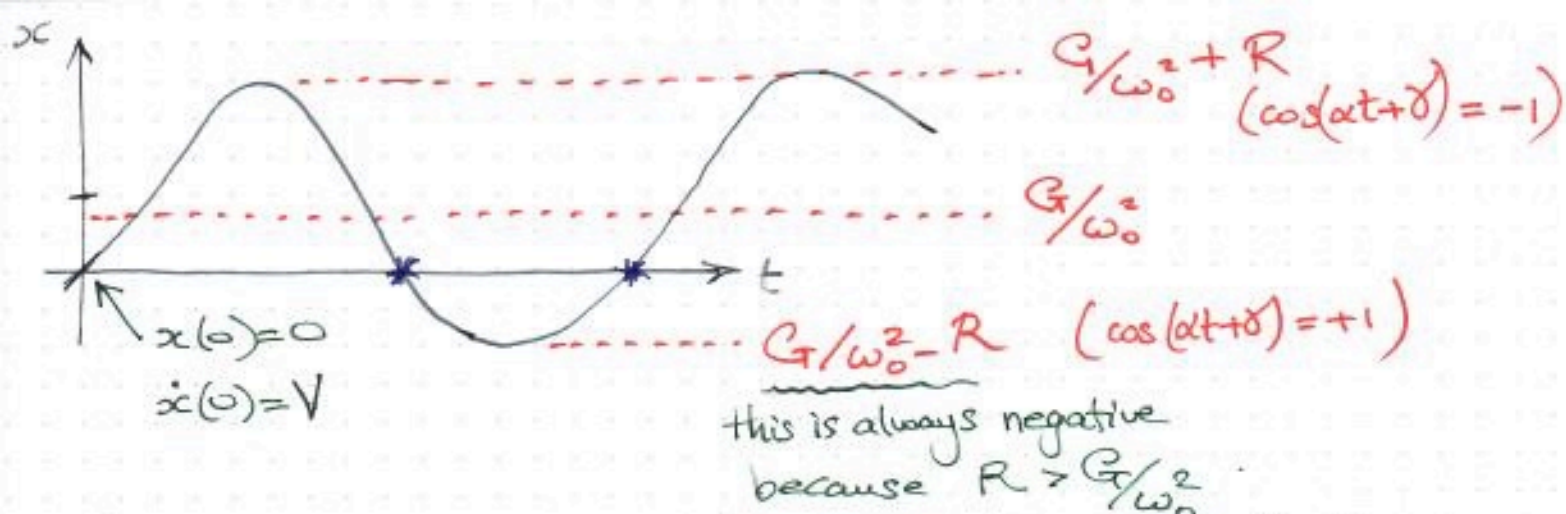 x
G/ω₀² + R
(cos(αt+γ) = -1)
G/ω₀²
t
x(0)=0
ẋ(0)=V
G/ω₀² - R (cos(αt+γ) = +1)
this is always negative
because R > G/ω₀²